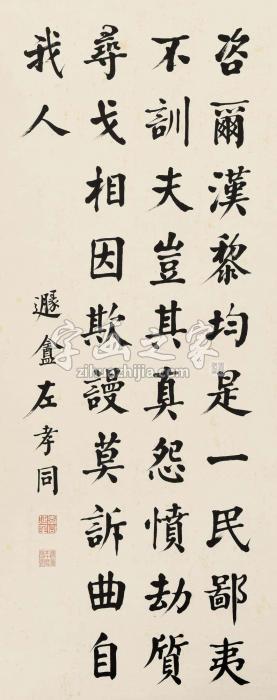 咨爾漢黎均是一民鄙夷
不訓夫豈其真怨憤劫質
尋戈相因欺謾莫訴曲自
我人
遯盦左孝同
字画之家
zihuazhijia.com